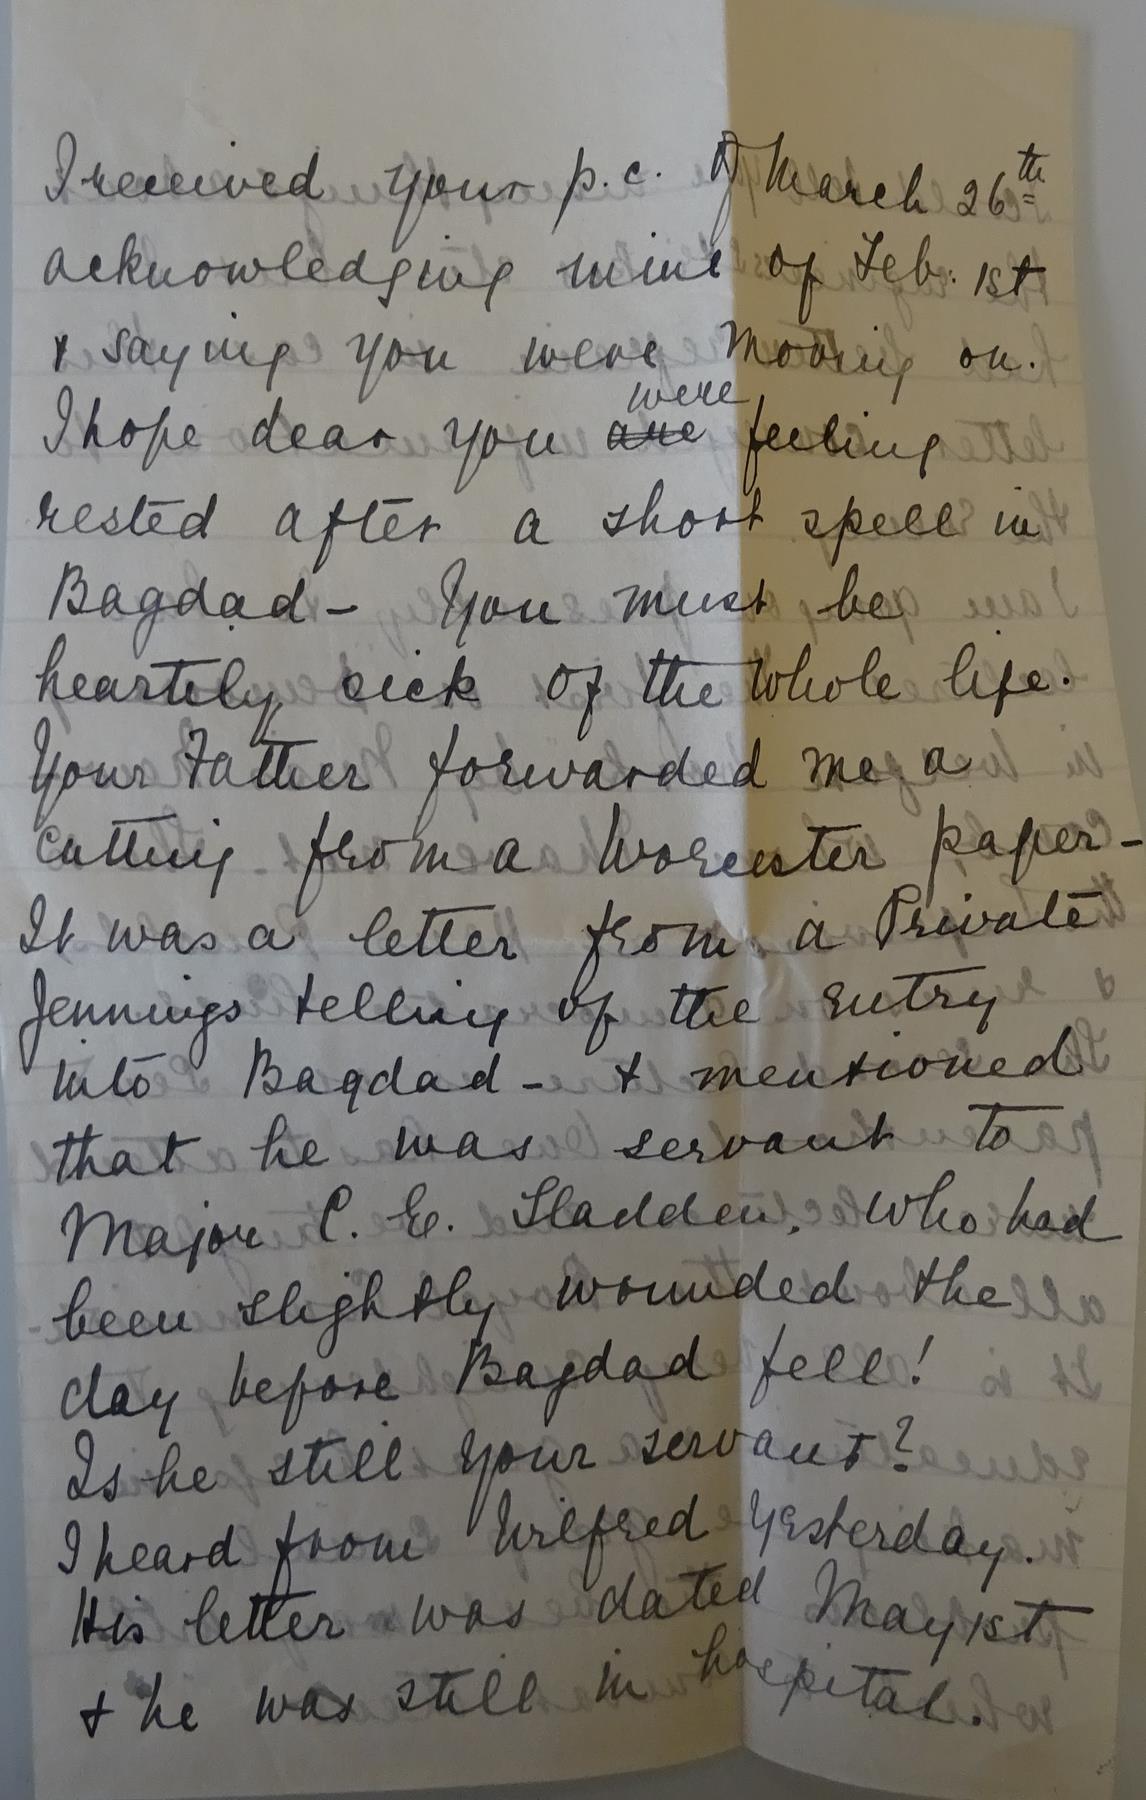 I received your p.c. of March 26th
acknowledging mine of Feb: 1st
& saying you were moving on.
I hope dear you ~~are~~ were feeling
rested after a short spell in
Bagdad – You must be
heartely sick of the whole life.
Your Father forwarded me a
cutting from a Worcester paper –
It was a letter from a Private
Jennings telling of the entry
into Bagdad – & mentioned
that he was servant to
Major C. E. Sladden, who had
been slightly wounded the
day before Bagdad fell!
Is he still your servant?
I heard from Wilfred yesterday.
His letter was dated May 1st
& he was still in hospital.